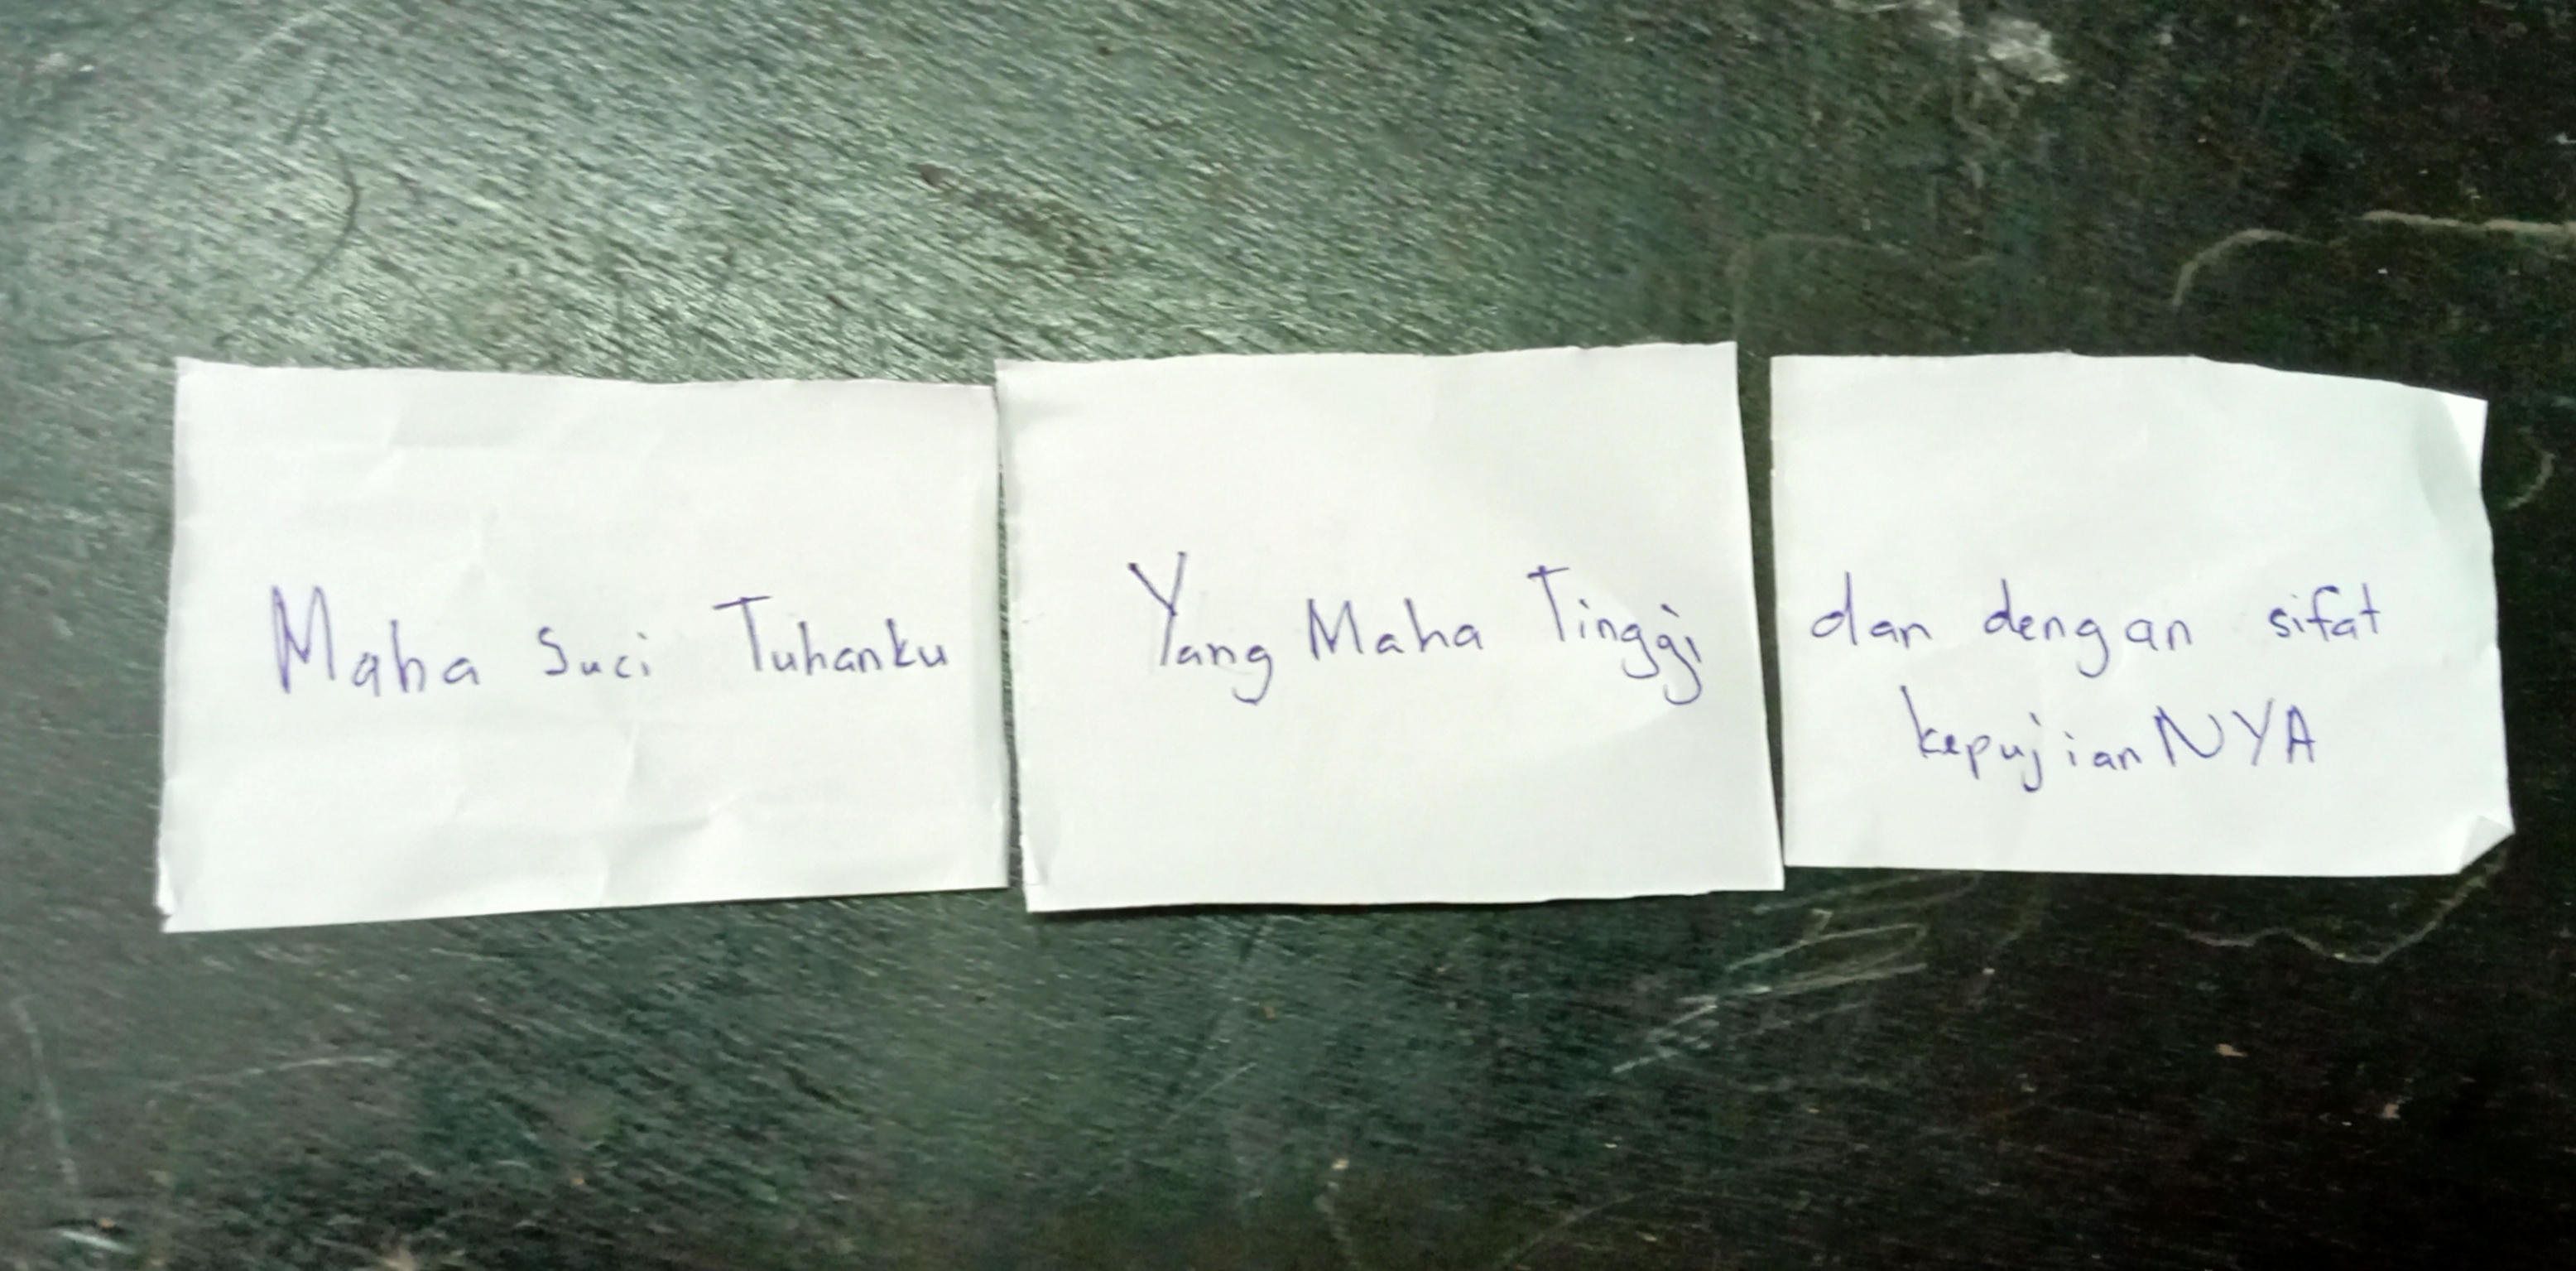 Maha Suci Tuhanku
Yang Maha Tinggi
dan dengan sifat
kepujianNYA